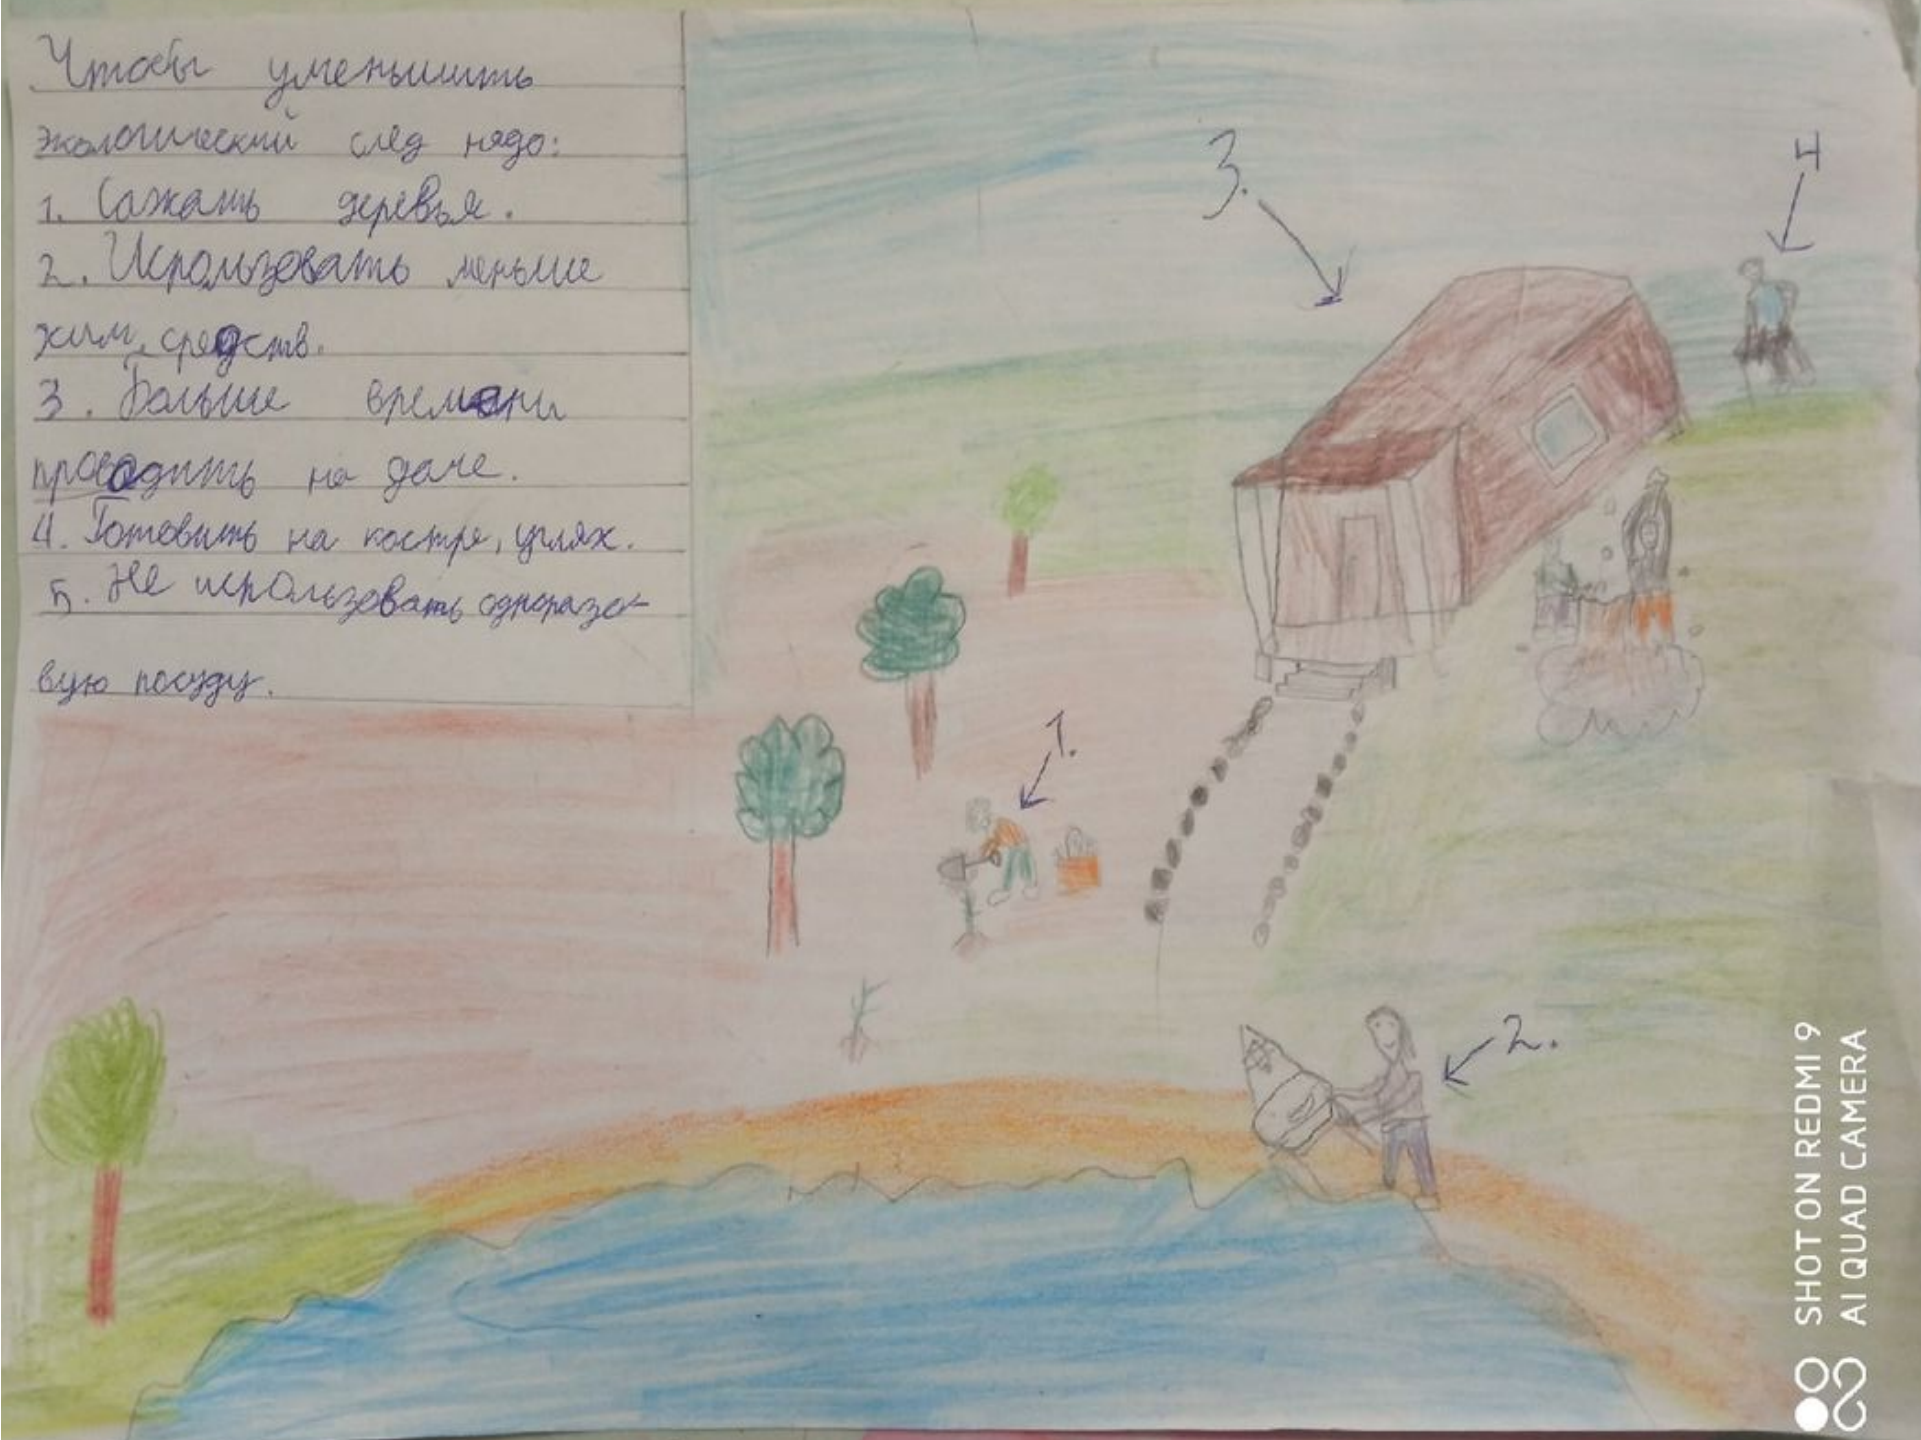 Чтобы уменьшить
экологический след нядо:
1. Сажать деревья.
2. Использовать меньше
хим. средств.
3. Больше времени
проводить на даче.
4. Готовить на костре, углях.
5. Не использовать одноразо-
вую посуду.
3.
4
1.
2.
SHOT ON REDMI 9
AI QUAD CAMERA